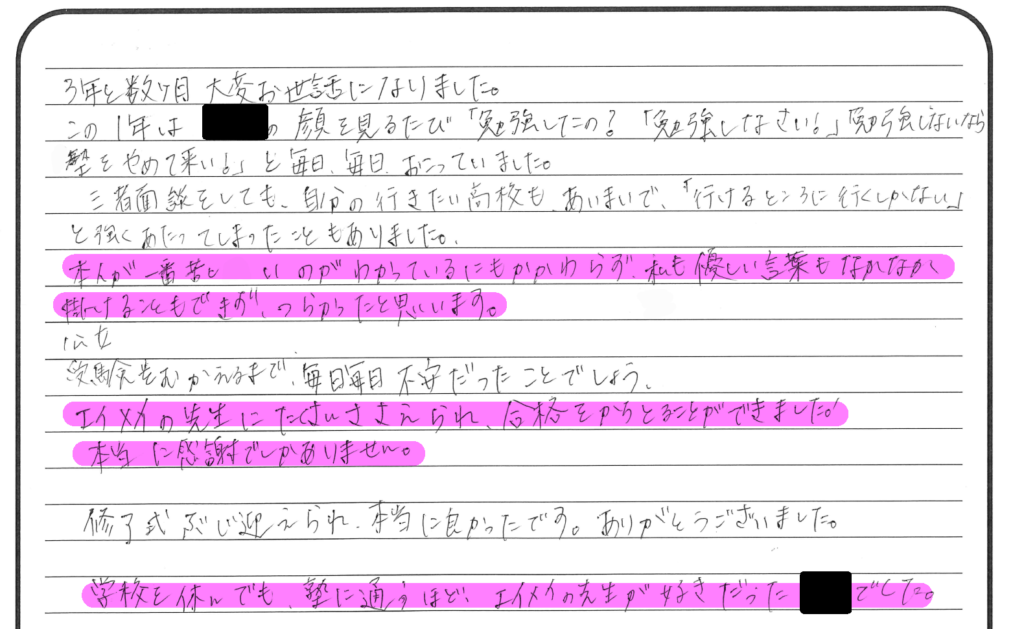 3年と数ヶ月 大変お世話になりました。
この1年は の 顔を見るたび「勉強したの?「勉強しなさい!」勉強しないなら
塾をやめて来い!」と毎日、毎日、おこっていました。
三者面談をしても、自分の行きたい高校も、あいまいで、「行けるところに行くしかない」
と強くあたってしまったこともありました。
本人が一番苦し いのがわかっているにもかかわらず、私も優しい言葉もなかなか
掛けることもできず、つらかったと思います。
受験をむかえるまで、毎日毎日 不安だったことでしょう。
エイメイの先生にたくさんささえられ、合格をかちとることができました。
本当に感謝でしかありません。
修了式 ぶじ迎えられ、本当に良かったです。ありがとうございました。
学校を休んでも、塾に通うほど、エイメイの先生が好きだった でした。